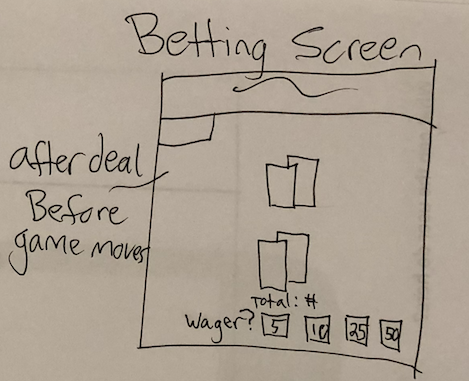 Betting Screen
after deal
Before
game moves
Total: #
Wager? 5 10 25 50